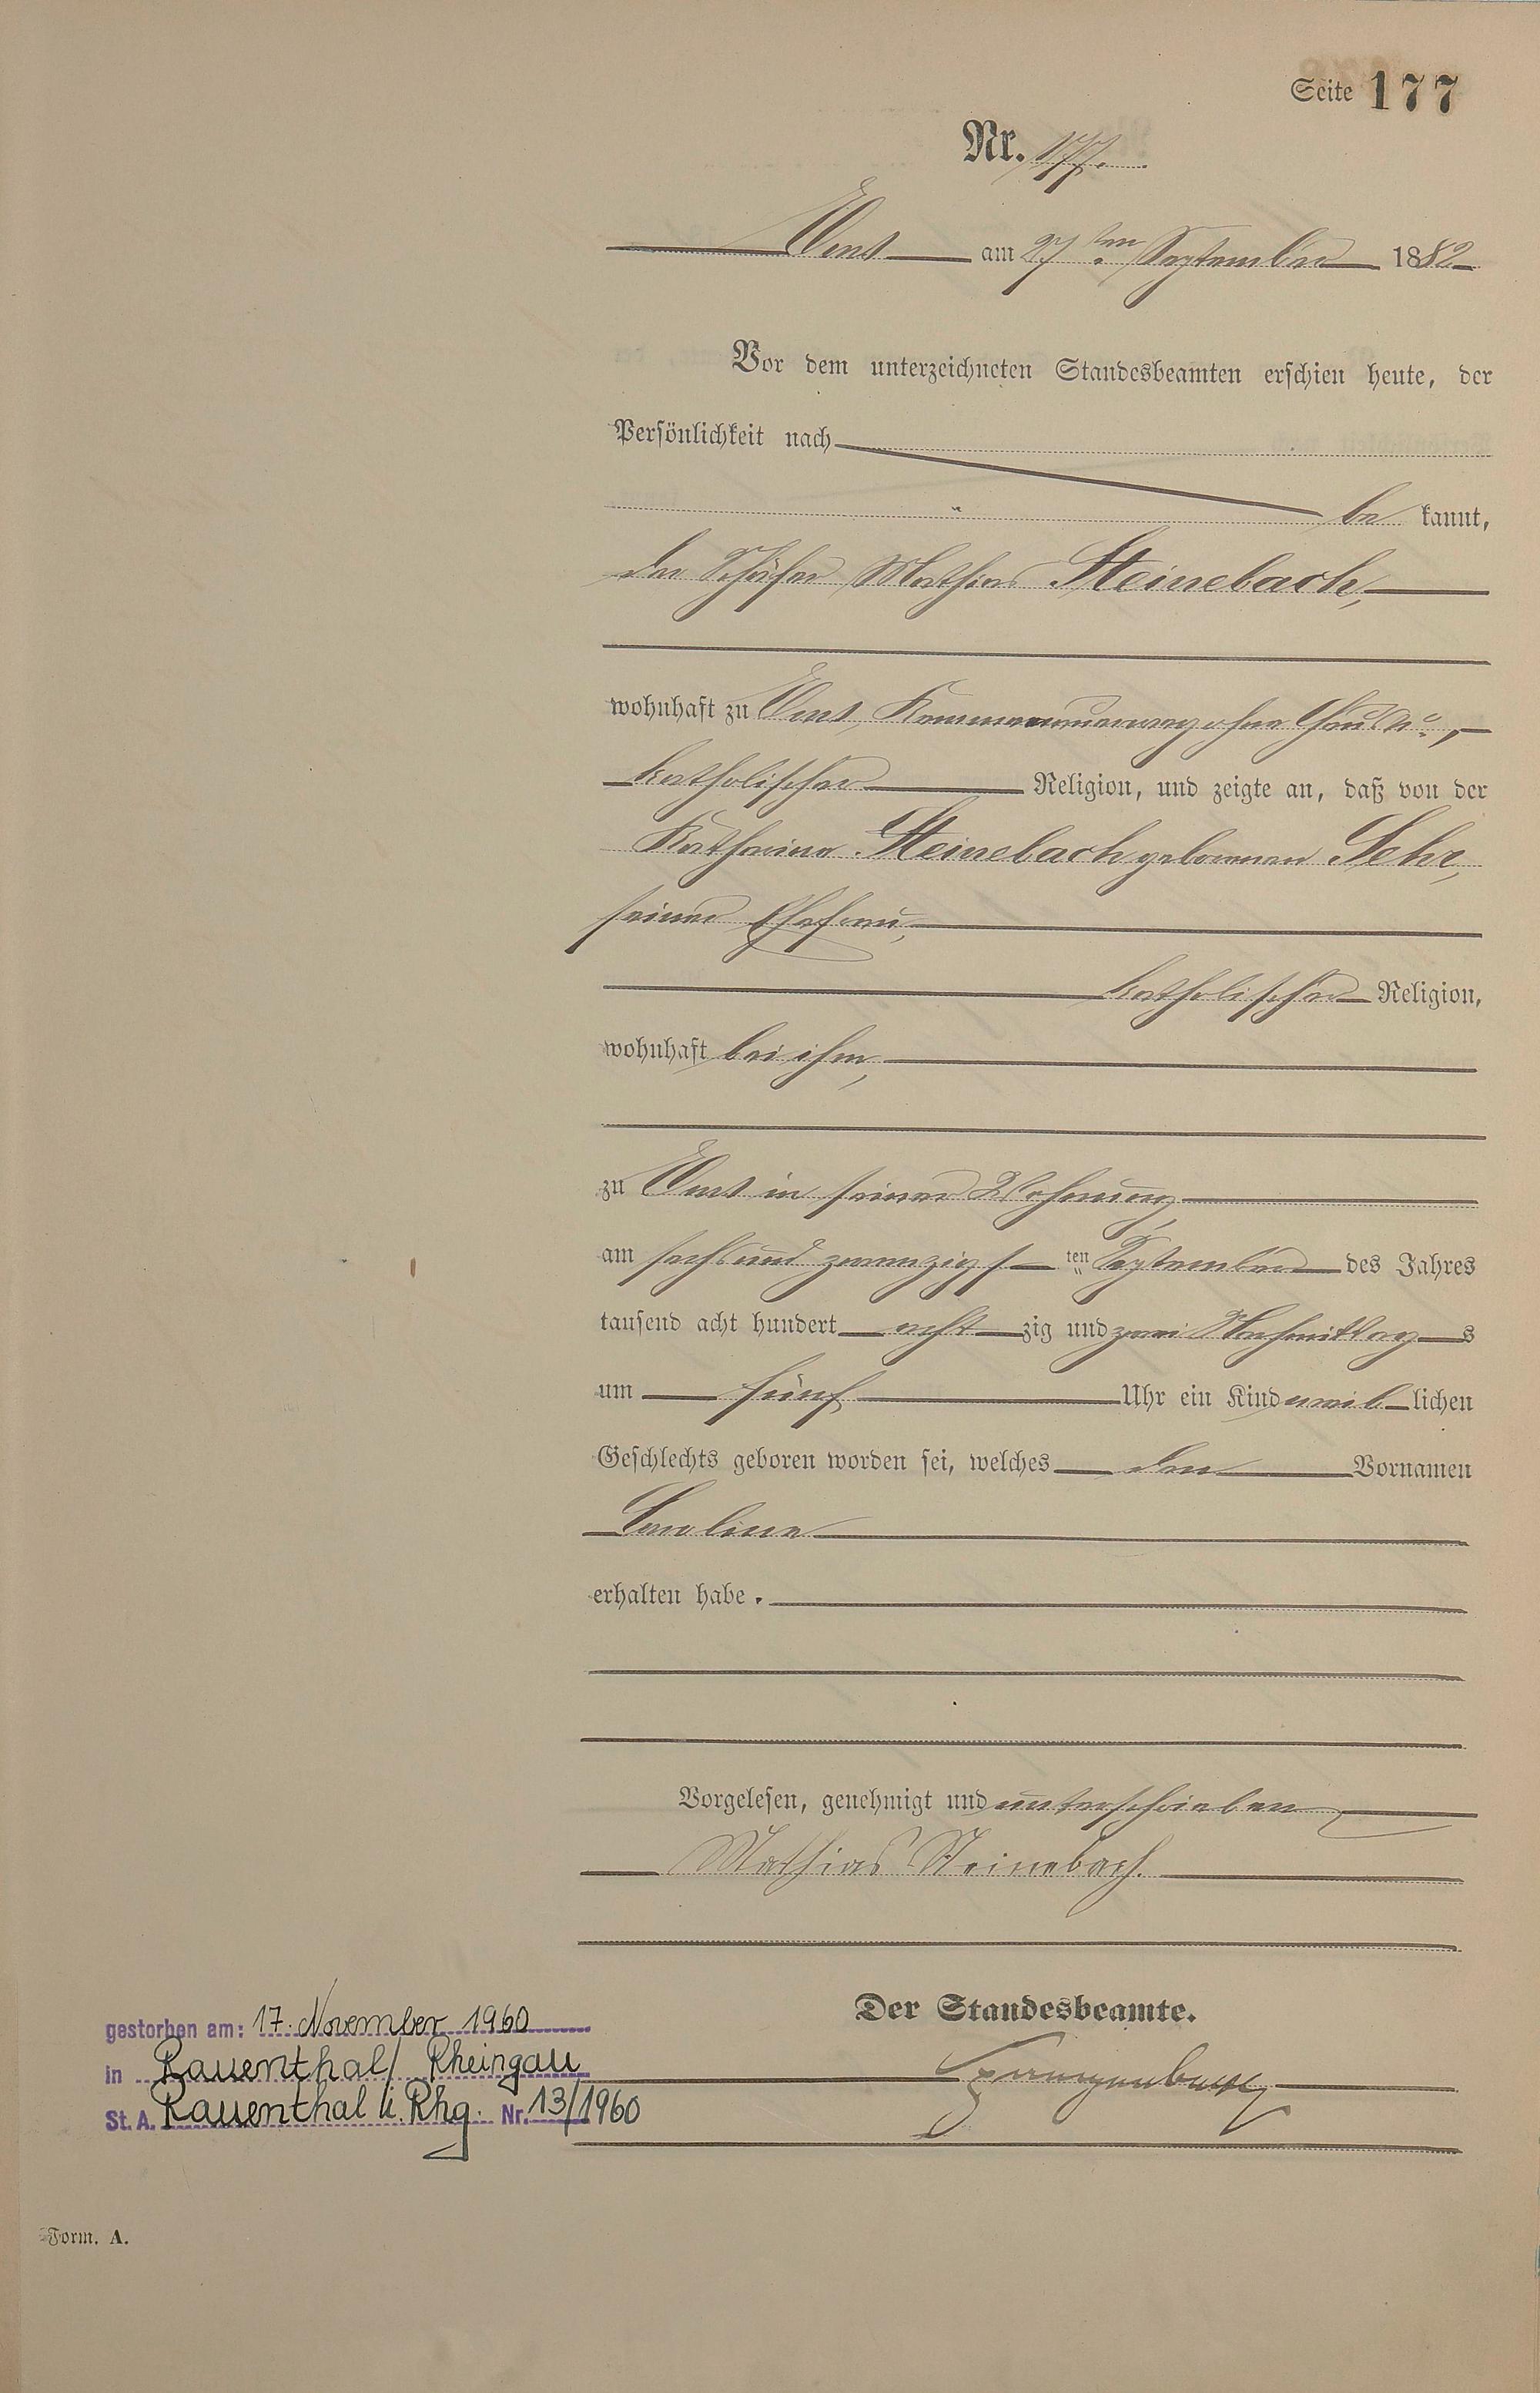 Seite 177
Nr. 177.
Ems am 27ten September 1882
Vor dem unterzeichneten Standesbeamten erschien heute, der
Persönlichkeit nach
be kannt,
der Schäfer Mathias Steinebach,
wohnhaft zu Ems, ohne Haus No.,
katholischer Religion, und zeigte an, daß von der
Katharina Steinebach geborenen Sehr,
seiner Ehefrau,
katholischer Religion,
wohnhaft bei ihm,
zu Ems in seiner Wohnung,
am sechsundzwanzigs ten September des Jahres
tausend acht hundert acht zig und zwei Nachmittag s
um fünf Uhr ein Kind weib lichen
Geschlechts geboren worden sei, welches den Vornamen
Caroline
erhalten habe.
Vorgelesen, genehmigt und unterschrieben
Mathias Steinebach.
Der Standesbeamte.
gestorben am: 17. November 1960
in Rauenthal/ Rheingau
St. A. Rauenthal i. Rhg. Nr. 13/1960
Form. A.